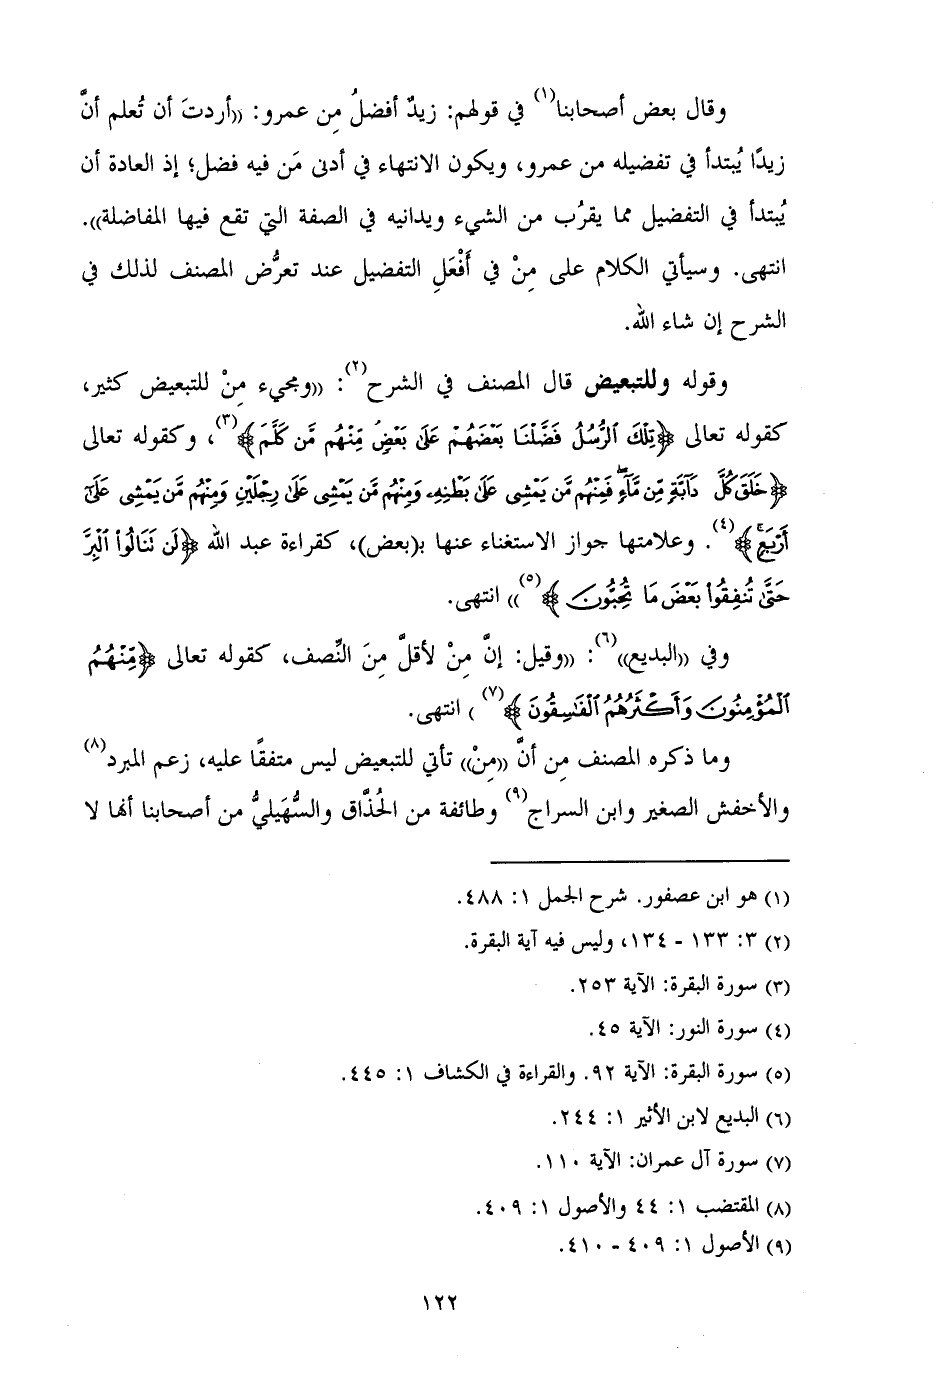 وقال بعض أصحابنا(١) في قولهم: زيدٌ أفضلُ مِن عمرو: «أردتَ أن تُعلم أنَّ
زيدًا يُبتدأ في تفضيله من عمرو، ويكون الانتهاء في أدنى مَن فيه فضل؛ إذ العادة أن
يُبتدأ في التفضيل مما يقرُب من الشيء ويدانيه في الصفة التي تقع فيها المفاضلة».
انتهى. وسيأتي الكلام على مِنْ في أَفْعَلِ التفضيل عند تعرُّض المصنف لذلك في
الشرح إن شاء الله.
وقوله وللتبعيض قال المصنف في الشرح(٢): «ومجيء مِنْ للتبعيض كثير،
كقوله تعالى ﴿تِلْكَ ٱلرُّسُلُ فَضَّلْنَا بَعْضَهُمْ عَلَىٰ بَعْضٍ مِّنْهُم مَّن كَلَّمَ﴾(٣)، وكقوله تعالى
﴿خَلَقَ كُلَّ دَآبَّةٍ مِّن مَّآءٍ فَمِنْهُم مَّن يَمْشِى عَلَىٰ بَطْنِهِۦ وَمِنْهُم مَّن يَمْشِى عَلَىٰ رِجْلَيْنِ وَمِنْهُم مَّن يَمْشِى عَلَىٰٓ
أَرْبَعٍ﴾(٤). وعلامتها جواز الاستغناء عنها بـ(بعض)، كقراءة عبد الله ﴿لَن تَنَالُوا۟ ٱلْبِرَّ
حَتَّىٰ تُنفِقُوا۟ بَعْضَ مَا تُحِبُّونَ﴾(٥)» انتهى.
وفي «البديع»(٦): «وقيل: إنَّ مِنْ لأقلَّ مِنَ النِّصف، كقوله تعالى ﴿مِّنْهُمُ
ٱلْمُؤْمِنُونَ وَأَكْثَرُهُمُ ٱلْفَٰسِقُونَ﴾(٧) ) انتهى.
وما ذكره المصنف مِن أنَّ «مِنْ» تأتي للتبعيض ليس متفقًا عليه، زعم المبرد(٨)
والأخفش الصغير وابن السراج(٩) وطائفة من الحُذَّاق والسُّهَيليُّ من أصحابنا أنها لا
(١) هو ابن عصفور. شرح الجمل ١: ٤٨٨.
(٢) ٣: ١٣٣ - ١٣٤، وليس فيه آية البقرة.
(٣) سورة البقرة: الآية ٢٥٣.
(٤) سورة النور: الآية ٤٥.
(٥) سورة البقرة: الآية ٩٢. والقراءة في الكشاف ١: ٤٤٥.
(٦) البديع لابن الأثير ١: ٢٤٤.
(٧) سورة آل عمران: الآية ١١٠.
(٨) المقتضب ١: ٤٤ والأصول ١: ٤٠٩.
(٩) الأصول ١: ٤٠٩ - ٤١٠.
١٢٢